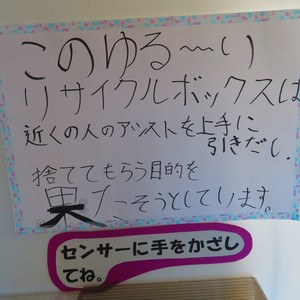 このゆる〜り
リサイクルボックスは
近くの人のアシストを上手に
引きだし、
捨ててもらう目的を
果たそうとしています。
センサーに手をかざし
てね。